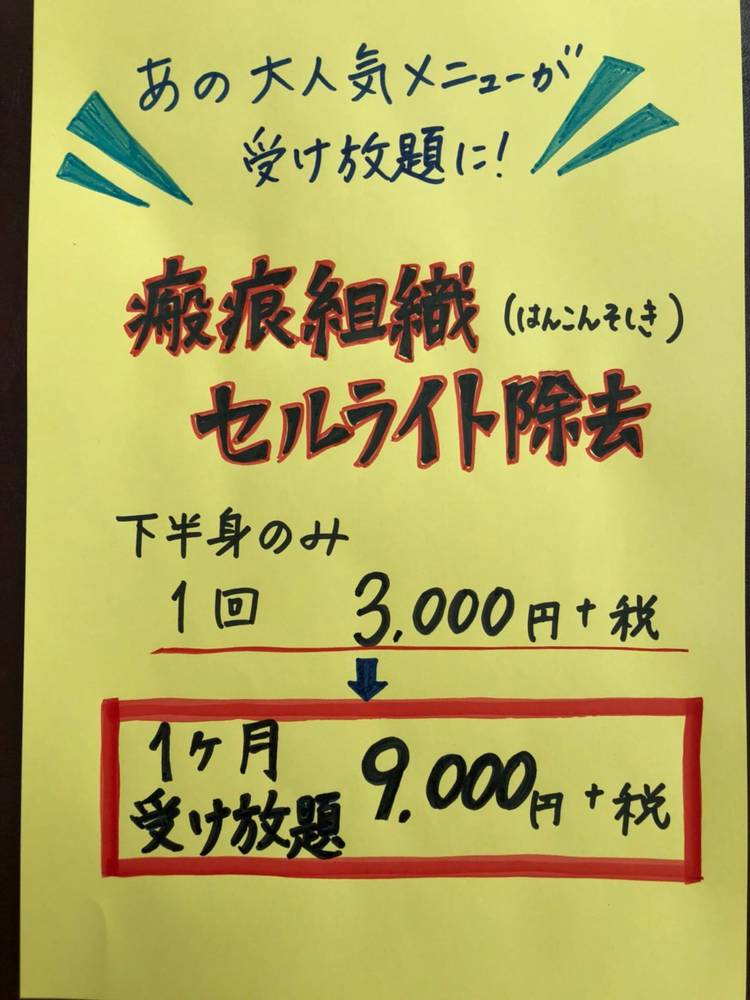 あの大人気メニューが
受け放題に!
瘢痕組織(はんこんそしき)
セルライト除去
下半身のみ
1回 3.000円+税
1ヶ月
受け放題 9.000円+税